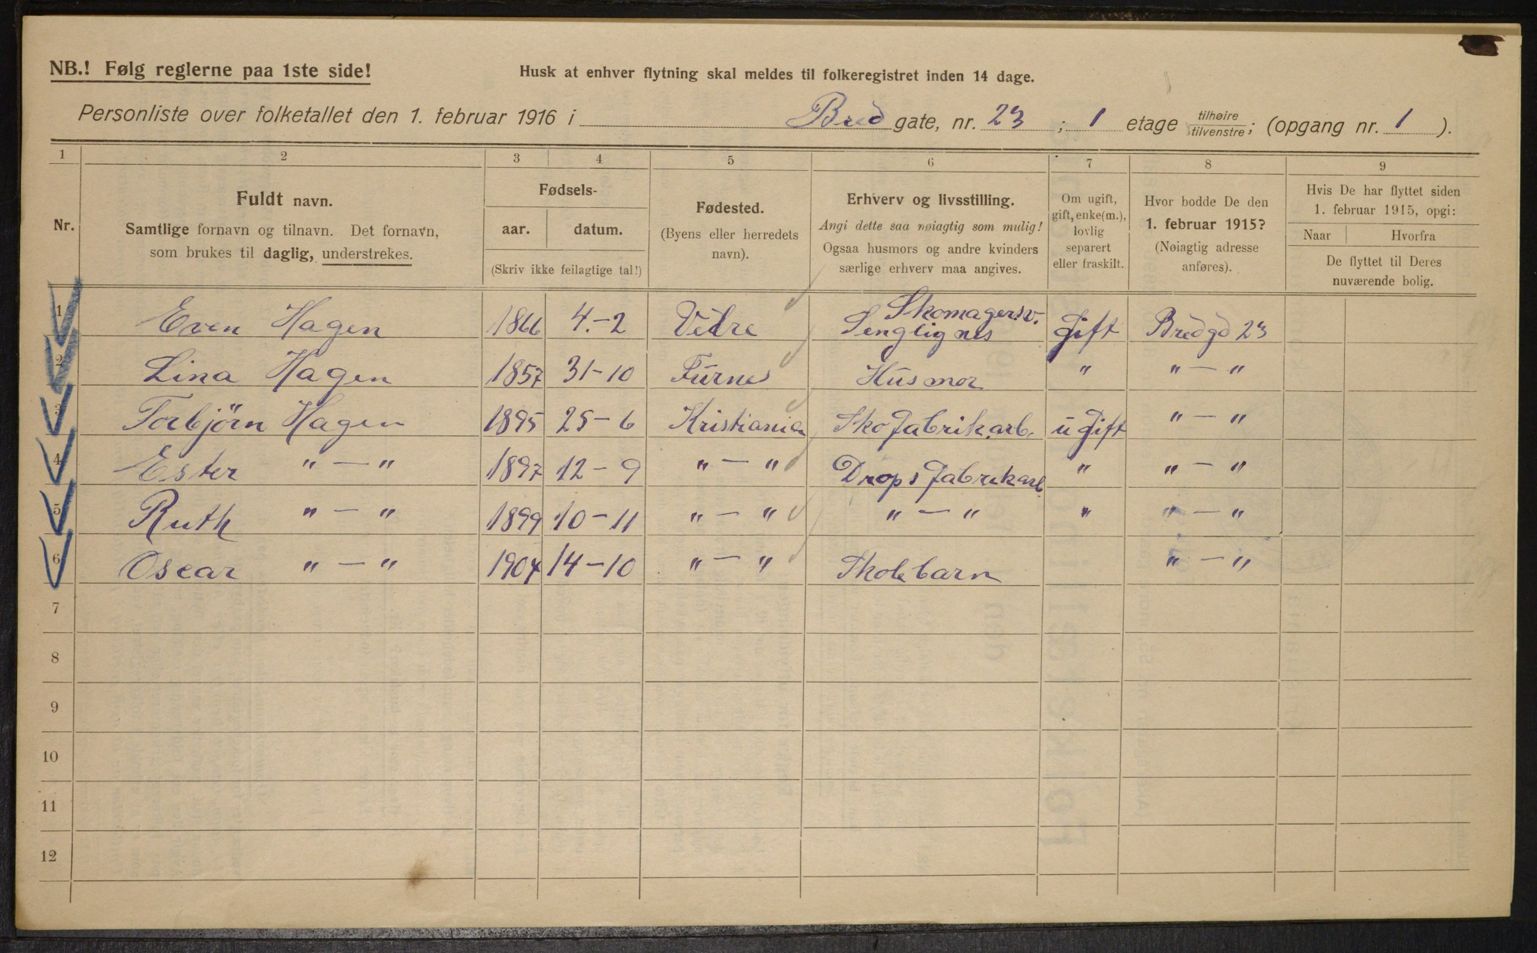 NB.! Følg reglerne paa 1ste side!
Husk at enhver flytning skal meldes til folkeregistret inden 14 dage.
Personliste over folketallet den 1. februar 1916 i Bred gate, nr. 23 ; 1 etage tilhøire tilvenstre; (opgang nr. 1 ).
1 2 3 4 5 6 7 8 9
Nr.
Fuldt navn.
Samtlige fornavn og tilnavn. Det fornavn,
som brukes til daglig, understrekes.
Fødsels-
aar. datum.
(Skriv ikke feilagtige tal!)
Fødested.
(Byens eller herredets
navn).
Erhverv og livsstilling.
Angi dette saa nøiagtig som mulig!
Ogsaa husmors og andre kvinders
særlige erhverv maa angives.
Om ugift,
gift, enke(m.),
lovlig
separert
eller fraskilt.
Hvor bodde De den
1. februar 1915?
(Nøiagtig adresse
anføres).
Hvis De har flyttet siden
1. februar 1915, opgi:
Naar Hvorfra
De flyttet til Deres
nuværende bolig.
1 Even Hagen 1866 4.-2 Skomagersv. gift Bredgd 23
2 Lina Hagen 1857 31-10 Furnes Husmor " " — "
3 Torbjörn Hagen 1895 25-6 Kristiania Skofabrikarb. ugift " — "
4 Ester " — " 1897 12-9 " — " Dropsfabrikarb " " — "
5 Ruth " — " 1899 10-11 " — " " — " " " — "
6 Oscar " — " 1904 14-10 " — " Skolebarn " — "
7
8
9
10
11
12